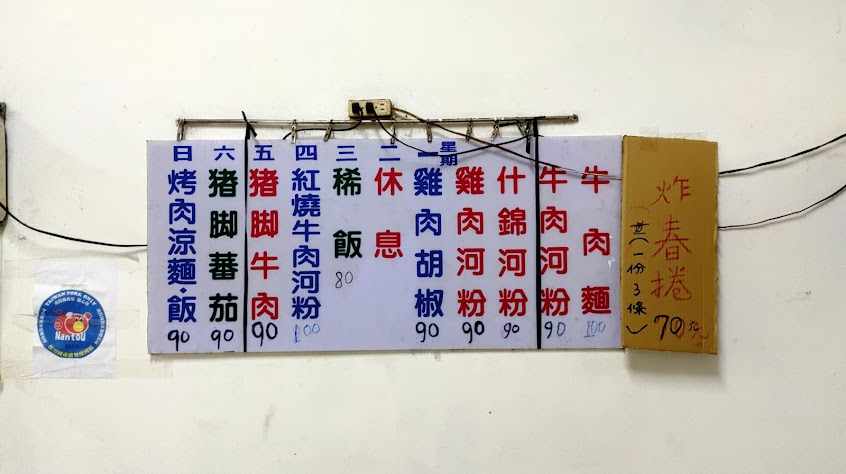 牛肉麵 100
牛肉河粉 90
什錦河粉 90
雞肉河粉 90
星期一 雞肉胡椒 90
二 休息
三 稀飯 80
四 紅燒牛肉河粉 100
五 猪脚牛肉 90
六 猪脚蕃茄 90
日 烤肉涼麵·飯 90
炸春捲
(一份3條)
70元
TAIWAN PORK ONLY
Nantou